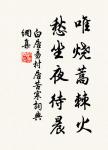 唯烧蒿棘火
愁坐夜待晨
白居易村居苦寒词典
网集